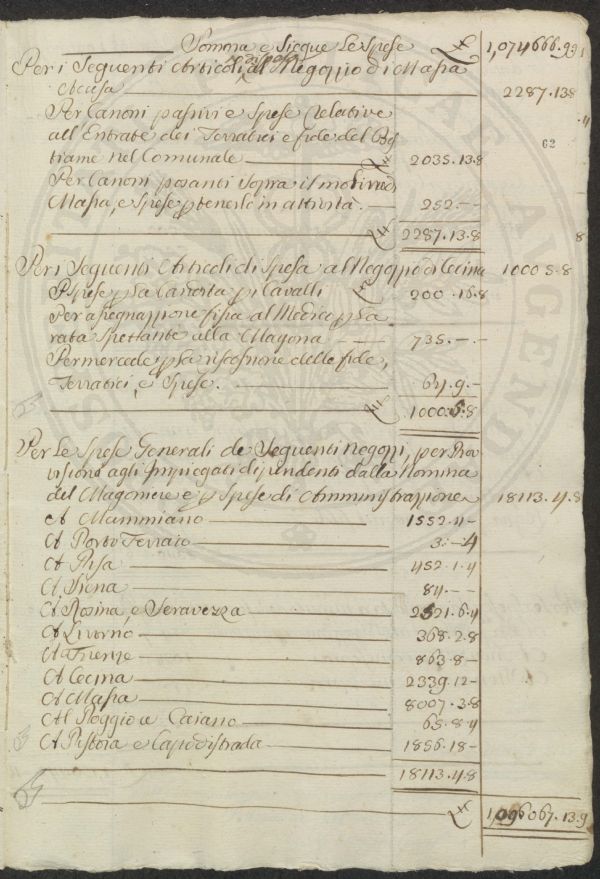 Somma e Siegue Le Spese £ 1,074666.991
Per i Seguenti Articoli di Spesa al Negozio di Massa
e Scusa 2287.13.8
Per Canoni passivi e Spese Relative
all'Entrate dei Terratici e fide del Bes
tiame nel Comunale 2035.13.8
62
Per Canoni posanti sopra il molino di
Massa, e Spese p tenerlo in attività 252.--
£ 2287.13.8
Per i Seguenti Articoli di Spesa al Negozio di Cecina 1000.5.8
Spese p la Canosta p i Cavalli £ 200.16.8
Per assegnazione fissa al Medico p la
rata Spettante alla Magona 735.-.-
Per mercede p la riscossione delle fide,
Terratici, e Spese. 64.9.-
£ 1000.5.8
Per Le Spese Generali de Seguenti Negozi, per Prov
visione agli Impiegati dipendenti dalla Nomina
del Magoniere e p Spese di Amministrazione 18113.4.8
A Mammiano 1552.11-
A Porto Ferraio 3.-4
A Pisa 452.1.4
A Siena 84.--
A Rosina, e Seravezza 2521.6.4
A Livorno 368.2.8
A Firenze 863.8-
A Cecina 2339.12-
A Massa 8007.3.8
Al Poggio a Caiano 65.8.4
A Pistoia e Capodistrada 1856.18-
18113.4.8
£ 1,096067.13.9